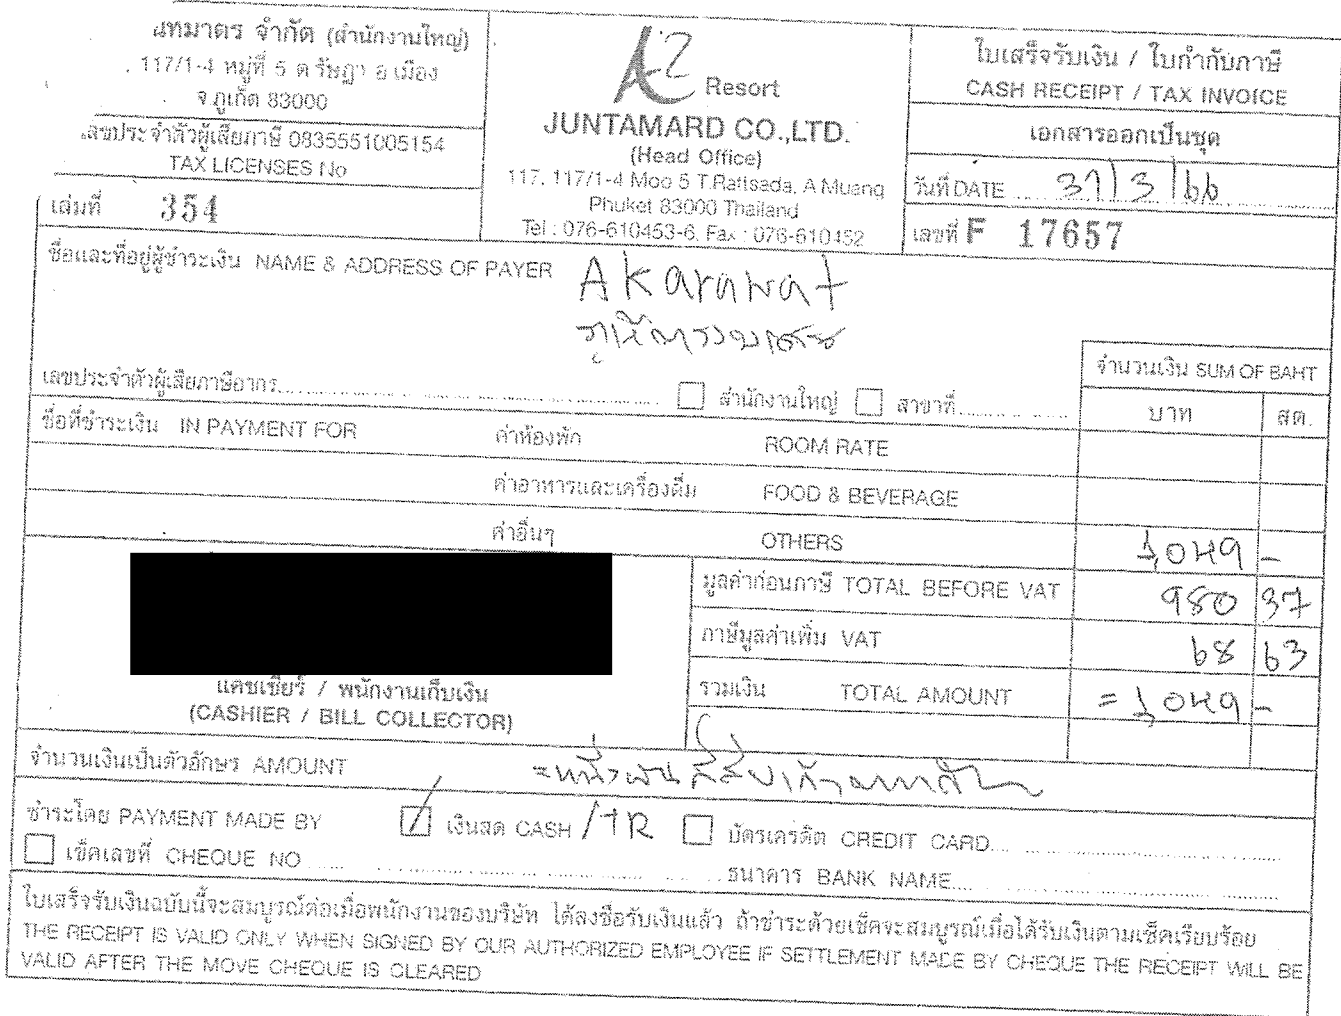 นทมาตร จำกัด (สำนักงานใหญ่)
117/1-4 หมู่ที่ 5 ต รัษฎา อ เมือง
จ.ภูเก็ต 83000
เลขประจำตัวผู้เสียภาษี 0835551005154
TAX LICENSES No
เล่มที่ 354
A2 Resort
JUNTAMARD CO.,LTD.
(Head Office)
117, 117/1-4 Moo 5 T.Ratsada, A.Muang
Phuket 83000 Thailand
Tel : 076-610453-6, Fax : 076-610452
ใบเสร็จรับเงิน / ใบกำกับภาษี
CASH RECEIPT / TAX INVOICE
เอกสารออกเป็นชุด
วันที่ DATE 31/3/66
เลขที่ F 17657
ชื่อและที่อยู่ผู้ชำระเงิน NAME & ADDRESS OF PAYER Akarawat
เลขประจำตัวผู้เสียภาษีอากร สำนักงานใหญ่ สาขาที่
จำนวนเงิน SUM OF BAHT
บาท สต.
ชื่อที่ชำระเงิน IN PAYMENT FOR ค่าห้องพัก ROOM RATE
ค่าอาหารและเครื่องดื่ม FOOD & BEVERAGE
ค่าอื่นๆ OTHERS 1,049 -
มูลค่าก่อนภาษี TOTAL BEFORE VAT 980 37
ภาษีมูลค่าเพิ่ม VAT 68 63
รวมเงิน TOTAL AMOUNT = 1,049 -
แคชเชียร์ / พนักงานเก็บเงิน
(CASHIER / BILL COLLECTOR)
จำนวนเงินเป็นตัวอักษร AMOUNT =หนึ่งพันสี่สิบเก้าบาทถ้วน
ชำระโดย PAYMENT MADE BY เงินสด CASH /TR บัตรเครดิต CREDIT CARD
เช็คเลขที่ CHEQUE NO ธนาคาร BANK NAME
ใบเสร็จรับเงินฉบับนี้จะสมบูรณ์ต่อเมื่อพนักงานของบริษัท ได้ลงชื่อรับเงินแล้ว ถ้าชำระด้วยเช็คจะสมบูรณ์เมื่อได้รับเงินตามเช็คเรียบร้อย
THE RECEIPT IS VALID ONLY WHEN SIGNED BY OUR AUTHORIZED EMPLOYEE IF SETTLEMENT MADE BY CHEQUE THE RECEIPT WILL BE
VALID AFTER THE MOVE CHEQUE IS CLEARED